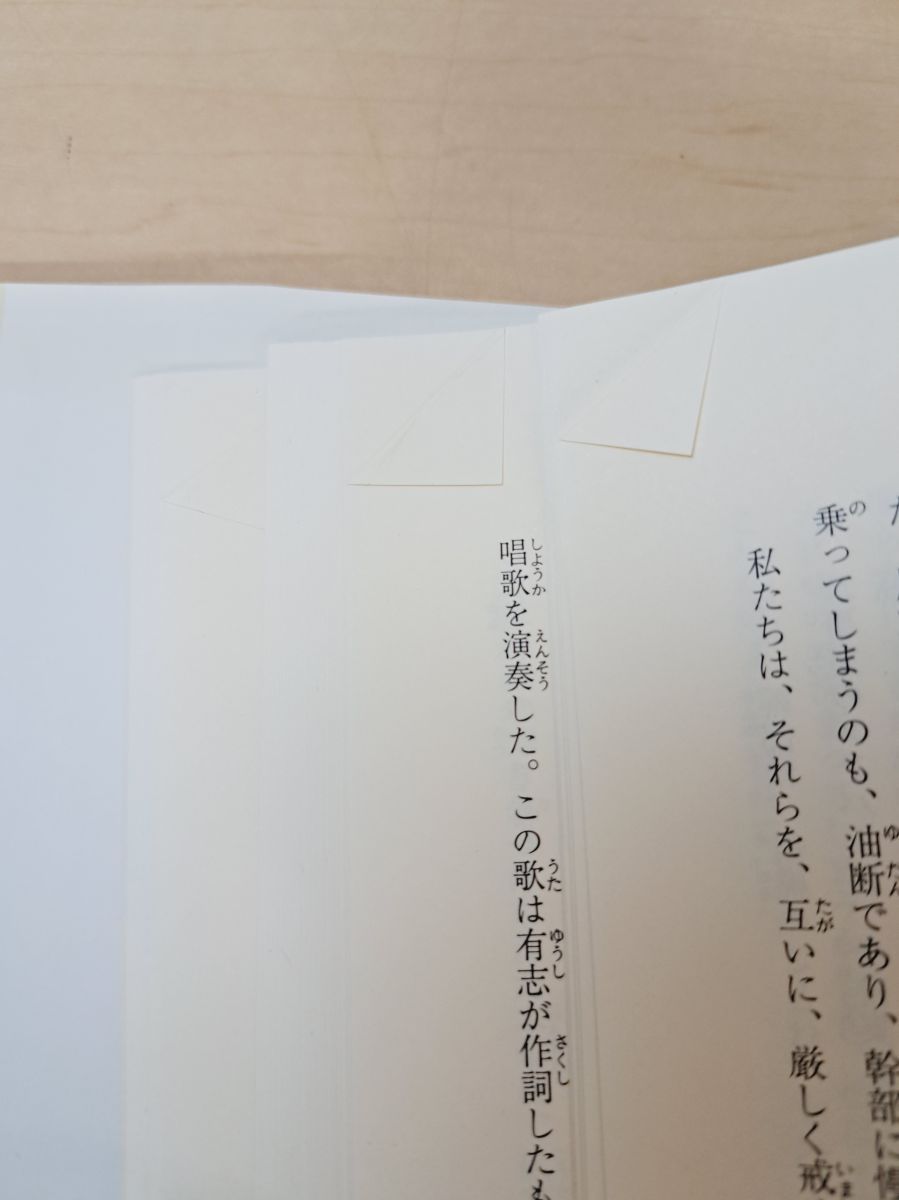 乗ってしまうのも、油断であり、幹部に
私たちは、それらを、互いに、厳しく戒
唱歌を演奏した。この歌は有志が作詞したも